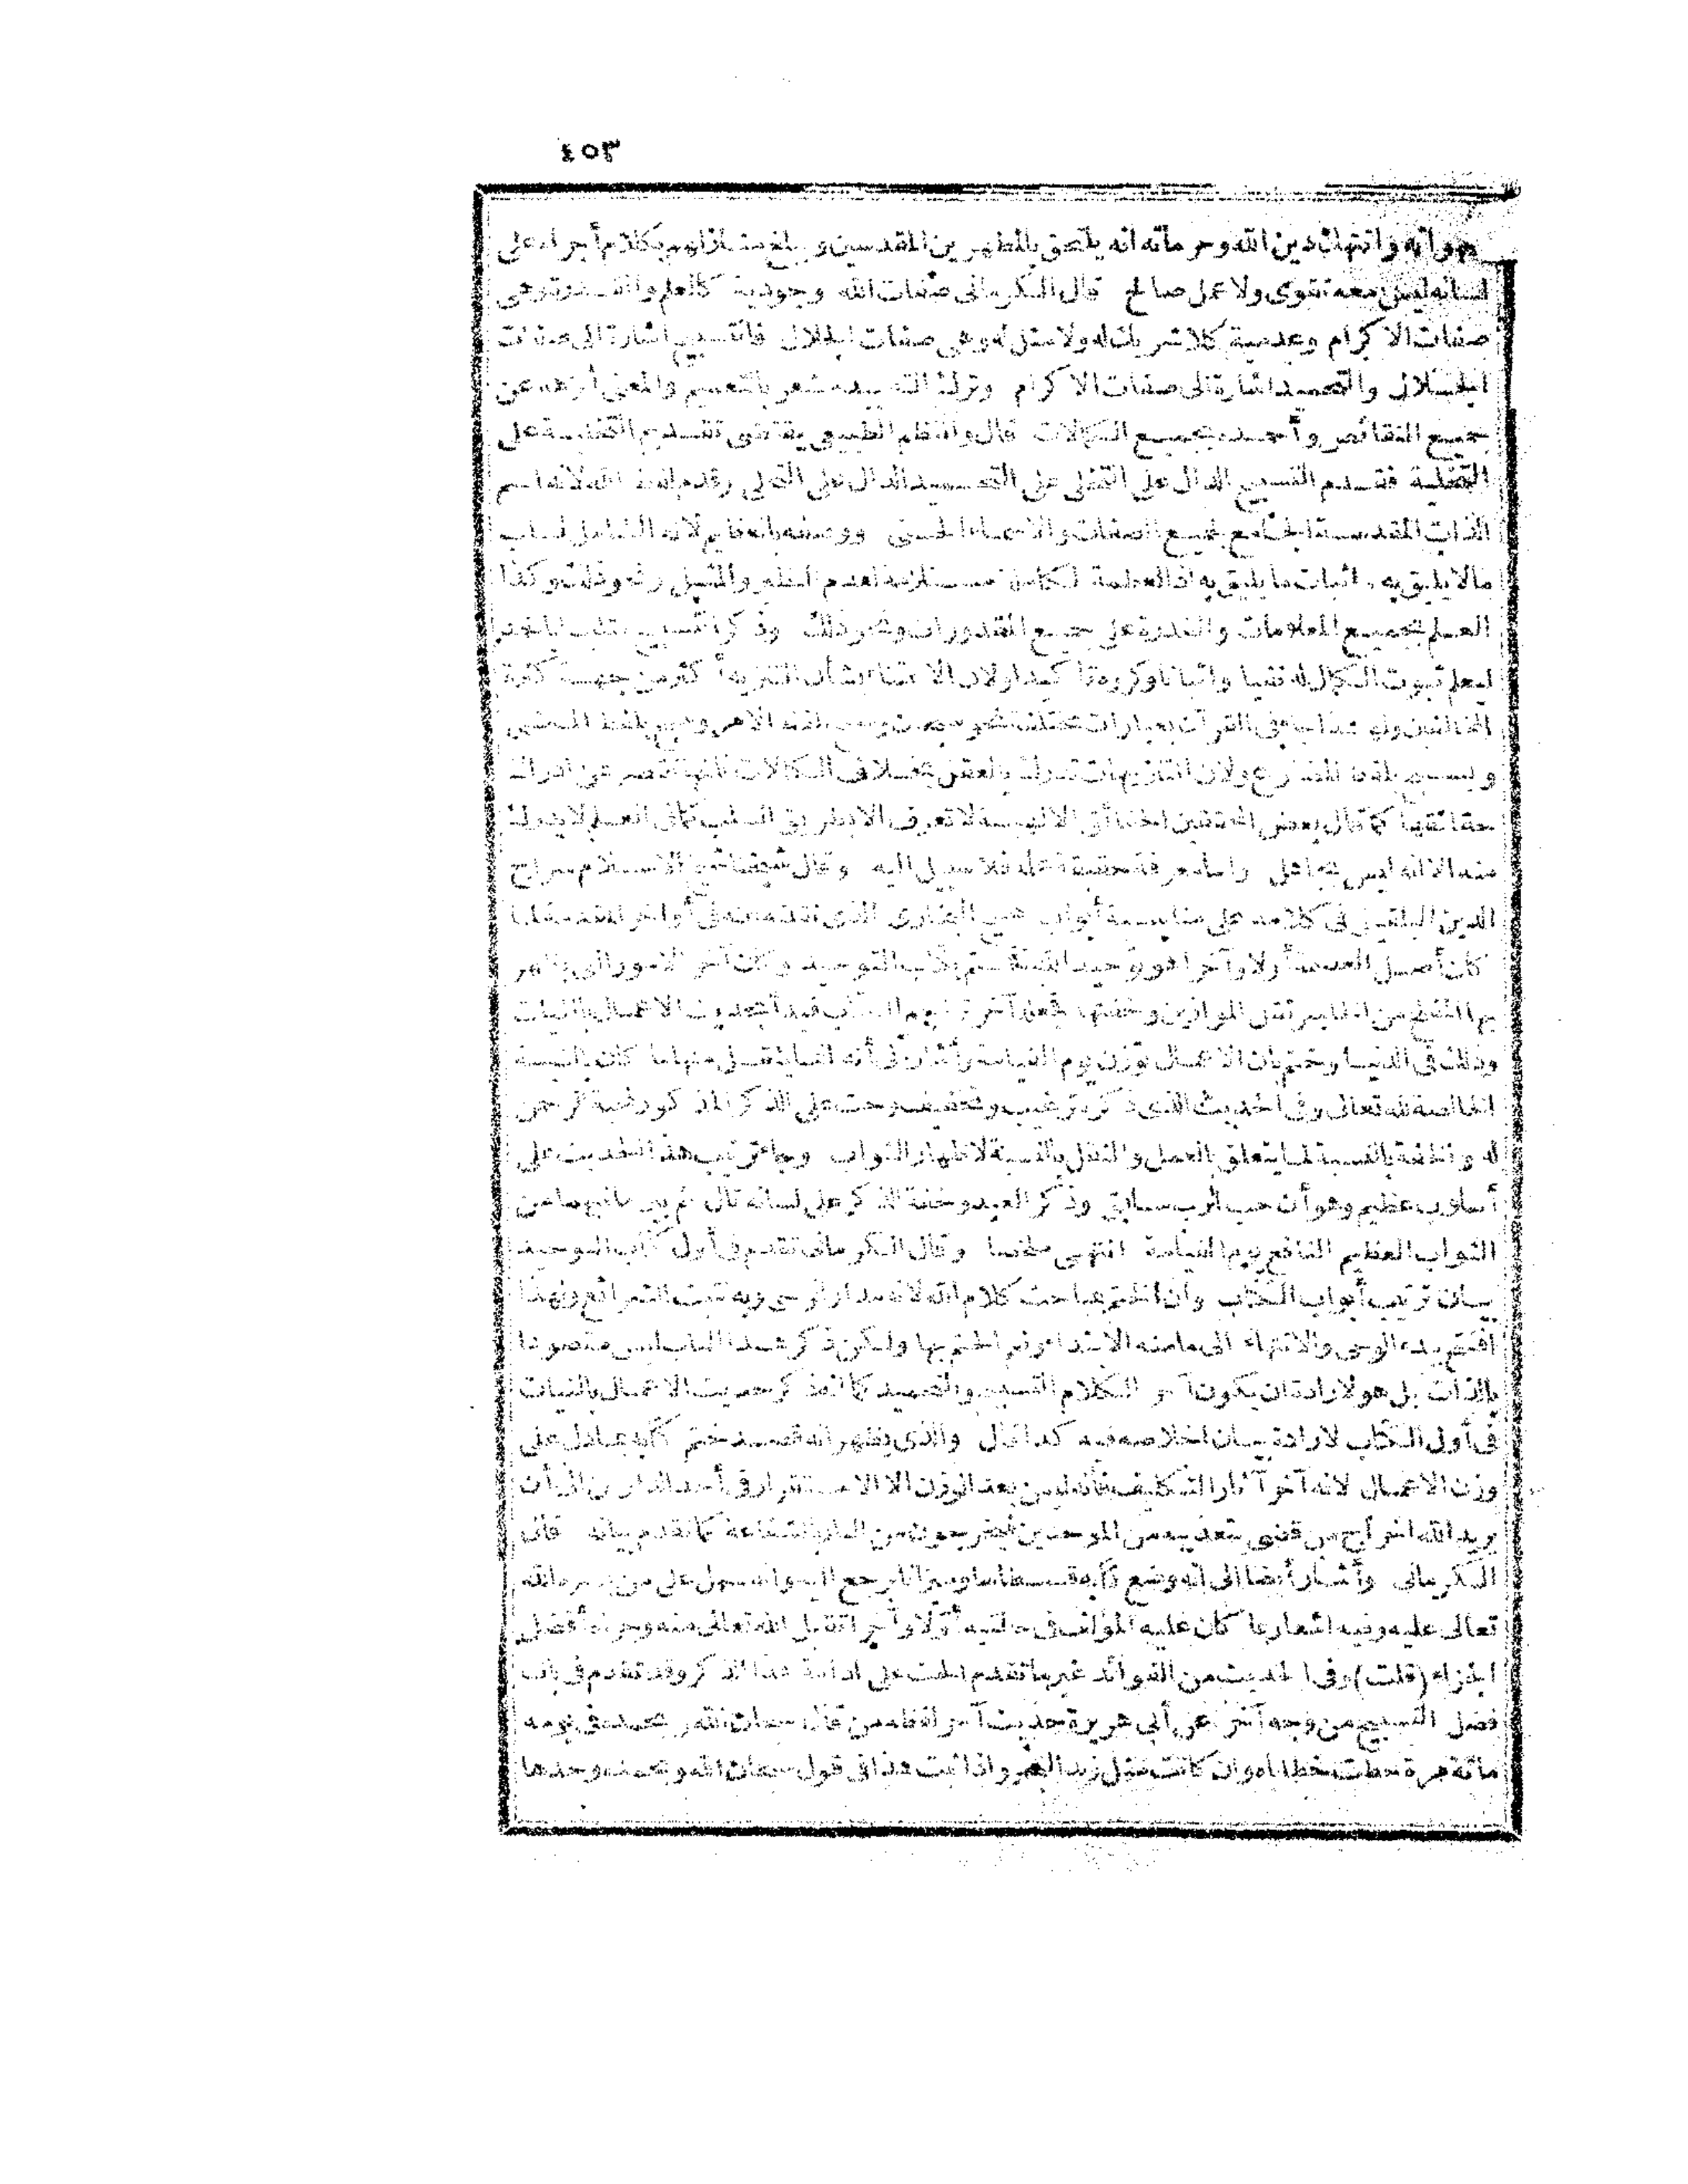 ٤٥٣
شهواته وانتهك دين الله وحرماته انه يلتحق بالمطهرين المقدسين ويبلغ منازلهم بكلام أجراه على
لسانه ليس معه تقوى ولا عمل صالح قال الكرمانى صفات الله وجودية كالعلم والقدرة وهى
صفات الاكرام وعدمية كلا شريك له ولا مثل له وهى صفات الجلال فالتسبيح اشارة الى صفات
الجلال والتحميد اشارة الى صفات الاكرام وترك التقييد مشعر بالتعميم والمعنى أنزهه عن
جميع النقائص وأحمده بجميع الكمالات قال والنظم الطبيعى يقتضى تقديم التخلية على
التحلية فقدم التسبيح الدال على التخلى على التحميد الدال على التحلى وقدم لفظ الله لانه اسم
الذات المقدسة الجامع لجميع الصفات والاسماء الحسنى ووصفه بالعظيم لانه الشامل لسلب
مالا يليق به واثبات ما يليق به اذ العظمة الكاملة مستلزمة لعدم النظير والمثيل ونحو ذلك وكذا
العلم بجميع المعلومات والقدرة على جميع المقدورات ونحو ذلك وذكر التسبيح متلبسا بالحمد
ليعلم ثبوت الكمال له نفيا واثباتا وكرره تأكيدا ولان الاعتناء بشأن التنزيه أكثر من جهة كثرة
المخالفين ولهذا جاء فى القرآن بعبارات مختلفة نحو سبحان وسبح بلفظ الامر وسبح بلفظ الماضى
ويسبح بلفظ المضارع ولان التنزيهات تدرك بالعقل بخلاف الكمالات فانها تقصر عن ادراك
حقائقها كما قال بعض المحققين الحقائق الالهية لا تعرف الا بطريق السلب كما فى العلم لا يدرك
منه الا انه ليس بجاهل وأما معرفة حقيقة علمه فلا سبيل اليه وقال شيخنا شيخ الاسلام سراج
الدين البلقينى فى كلامه على مناسبة أبواب صحيح البخارى الذى نقلته عنه فى أواخر المقدمة لما
كان أصل العصمة أولا وآخرا هو توحيد الله فختم بكتاب التوحيد وكان آخر الامور التى يظهر
بها المفلح من الخاسر ثقل الموازين وخفتها فجعله آخر تراجم الكتاب فبدأ بحديث الاعمال بالنيات
وذلك فى الدنيا وختم بان الاعمال توزن يوم القيامة وأشار الى أنه انما يثقل منها ما كان بالنية
الخالصة لله تعالى وفى الحديث الذى ذكره ترغيب وتخفيف وحث على الذكر المذكور لمحبة الرحمن
له والخفة بالنسبة لما يتعلق بالعمل والثقل بالنسبة لاظهار الثواب وجاء ترتيب هذا الحديث على
أسلوب عظيم وهو أن حب الرب سابق وذكر العبد وخفة الذكر على لسانه تال ثم بين ما فيهما من
الثواب العظيم النافع يوم القيامة انتهى ملخصا وقال الكرمانى تقدم فى أول كتاب التوحيد
بيان ترتيب أبواب الكتاب وأن الختم بمباحث كلام الله لانه مدار الوحى وبه تثبت الشرائع ولهذا
افتتح ببدء الوحى والانتهاء الى ما منه الابتداء ونعم الختم بها ولكن ذكر هذا الباب ليس مقصودا
بالذات بل هو لارادة ان يكون آخر الكلام التسبيح والتحميد كما انه ذكر حديث الاعمال بالنيات
فى أول الكتاب لارادة بيان اخلاصه فيه كذا قال والذى يظهر انه قصد ختم كتابه بما دل على
وزن الاعمال لانه آخر آثار التكليف فانه ليس بعد الوزن الا الاستقرار فى أحد الدارين الى أن
يريد الله اخراج من قضى بتعذيبه من الموحدين فيخرجون من النار بالشفاعة كما تقدم بيانه قال
الكرمانى وأشار أيضا الى انه وضع كتابه قسطاسا وميزانا يرجع اليه وانه سهل على من يسره الله
تعالى عليه وفيه اشعار بما كان عليه المؤلف فى حالتيه أولا وآخرا تقبل الله تعالى منه وجزاه أفضل
الجزاء (قلت) وفى الحديث من الفوائد غير ما تقدم الحث على ادامة هذا الذكر وقد تقدم فى باب
فضل التسبيح من وجه آخر عن أبى هريرة حديث آخر لفظه من قال سبحان الله وبحمده فى يومه
مائة مرة حطت خطاياه وان كانت مثل زبد البحر واذا ثبت هذا فى قول سبحان الله وبحمده وحدها